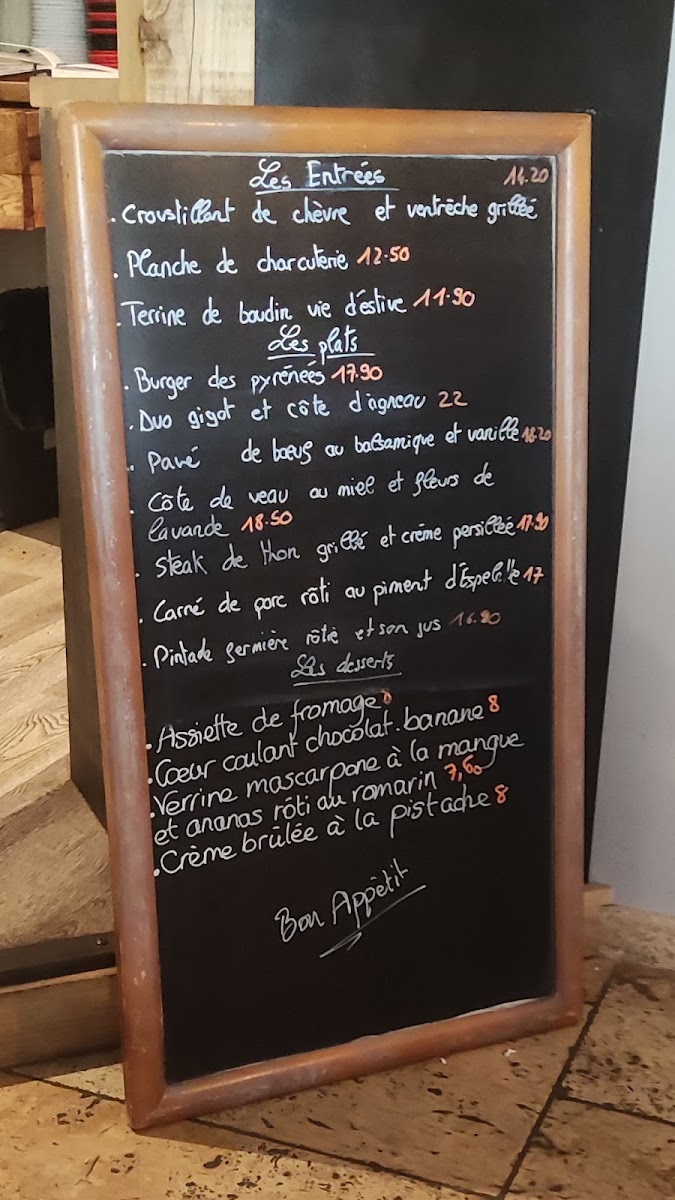 Les Entrées 14.20
. Croustillant de chèvre et ventrêche grillée
. Planche de charcuterie 12.50
. Terrine de boudin vie d'estive 11.90
Les plats
. Burger des pyrénées 17.90
. Duo gigot et côte d'agneau 22
. Pavé de bœuf au balsamique et vanille 18.20
. Côte de veau au miel et fleurs de
lavande 18.50
. Steak de thon grillé et crème persillée 17.90
. Carré de porc rôti au piment d'Espelette 17
. Pintade fermière rôtie et son jus 16.80
Les desserts
. Assiette de fromage 8
. Cœur coulant chocolat.banane 8
. Verrine mascarpone à la mangue
et ananas rôti au romarin 7,60
. Crème brûlée à la pistache 8
Bon Appètit